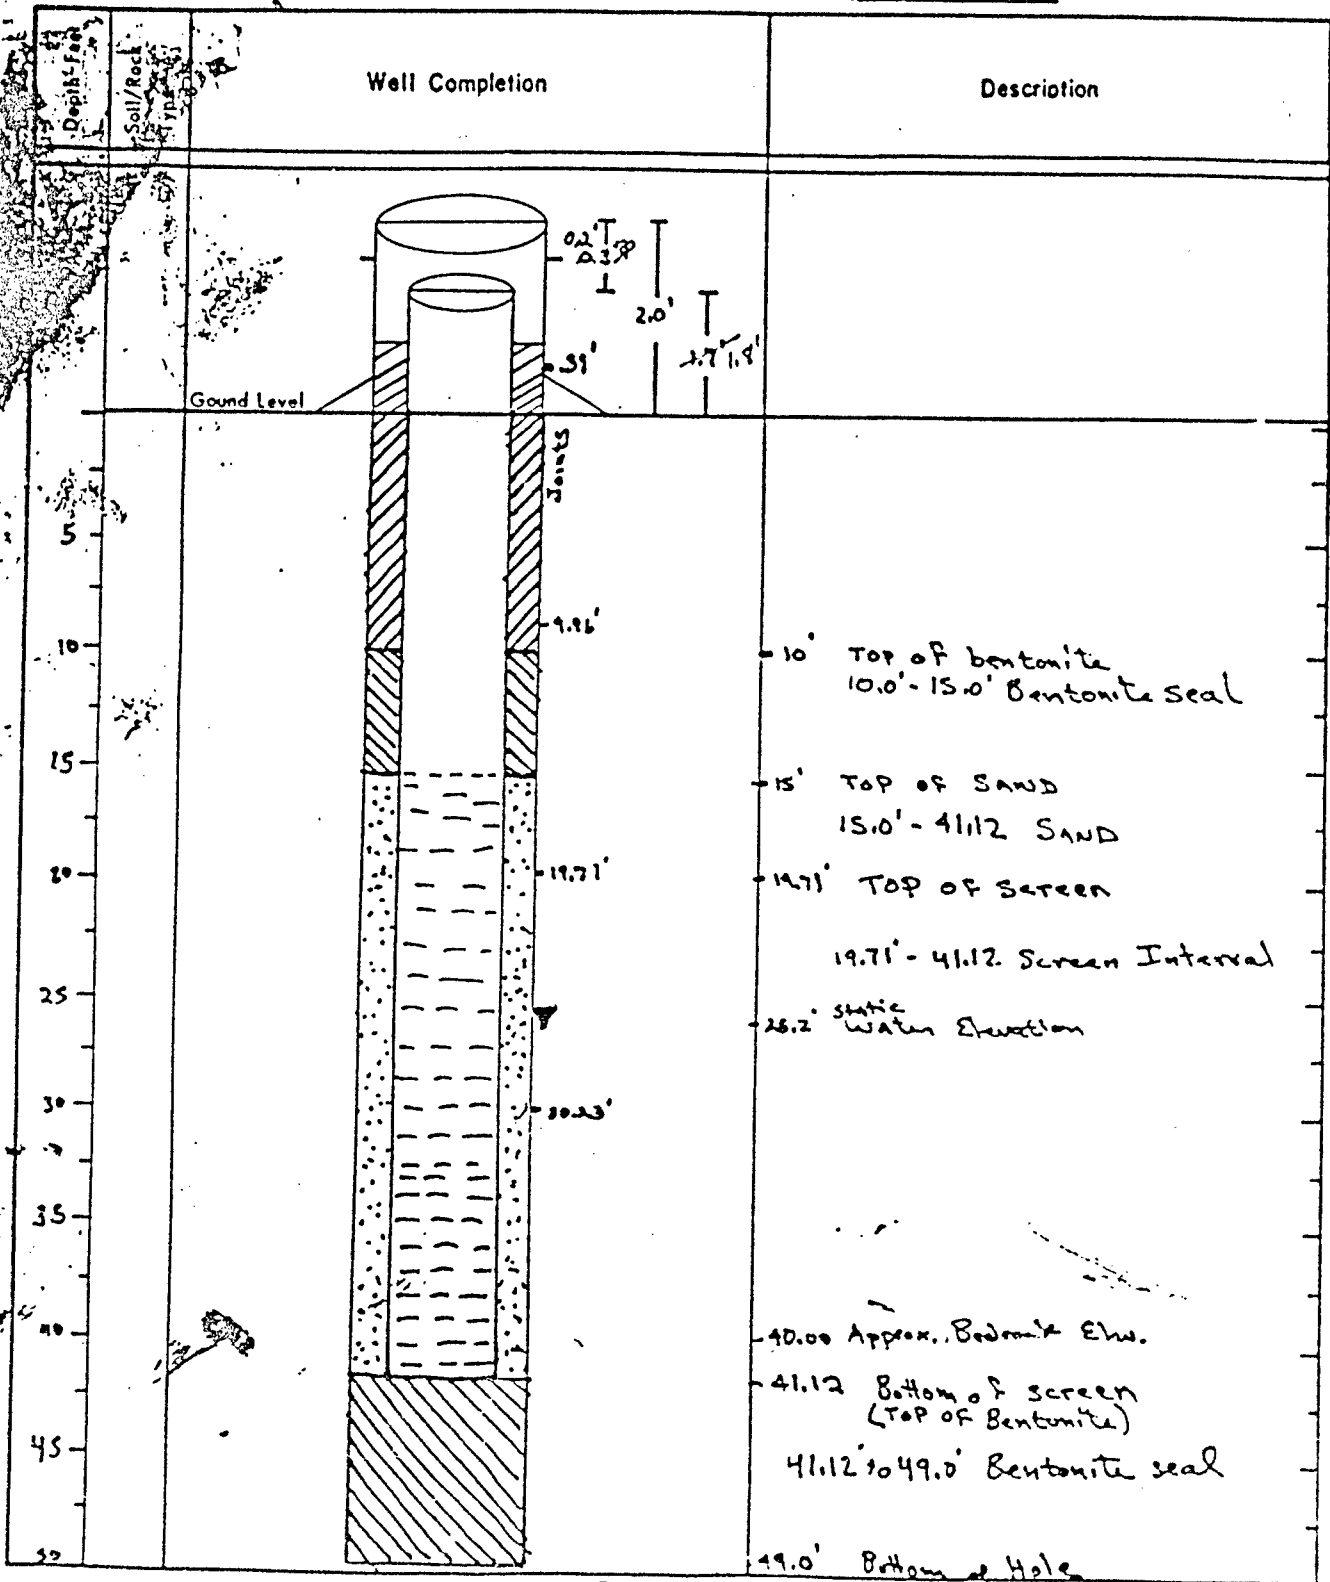 Depth-Feet
Soil/Rock
Type
Well Completion
Description
0.2'
2.0'
1.7' 1.8'
.39'
Gound Level
Joints
5
9.96'
10
10' TOP OF bentonite
10.0' - 15.0' Bentonite seal
15
15' TOP OF SAND
15.0' - 41.12 SAND
20
19.71'
19.71' TOP OF Screen
19.71' - 41.12 Screen Interval
25
static
26.2' Water Elevation
30
30.23'
35
40
40.00 Approx. Bedrock Elev.
41.12 Bottom of screen
(TOP OF Bentonite)
45
41.12' to 49.0' Bentonite seal
50
49.0' Bottom of Hole